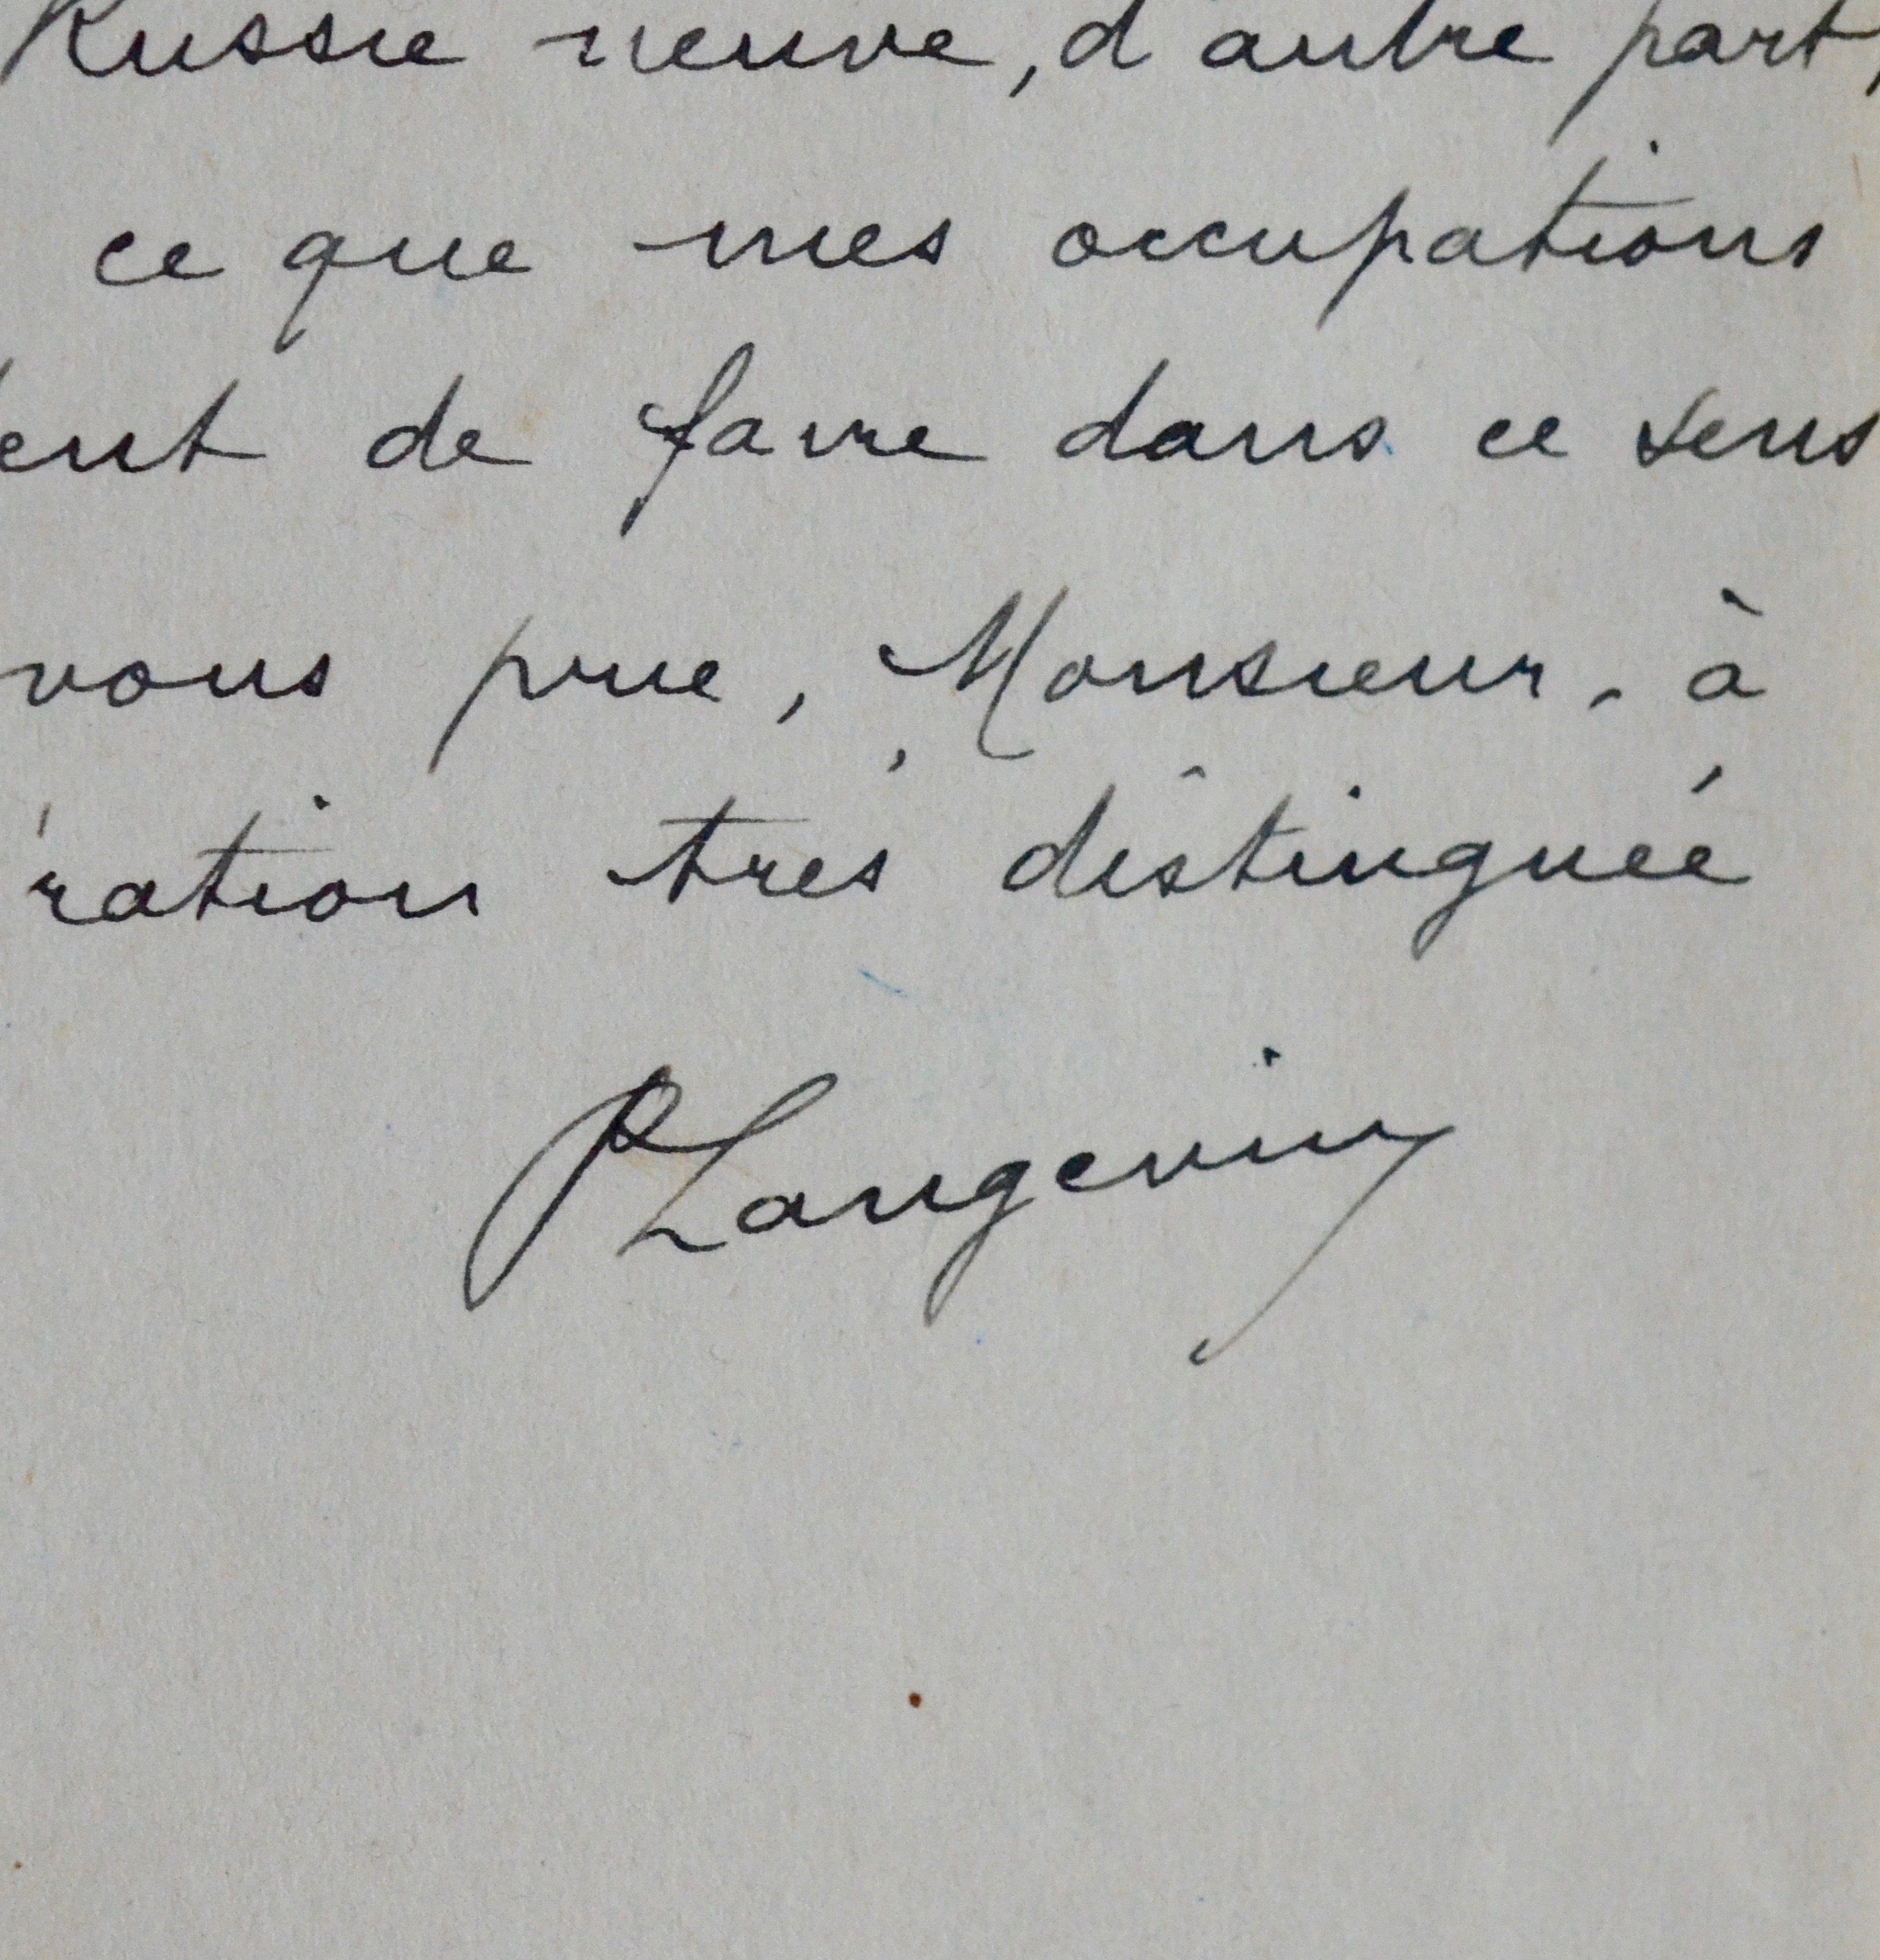 Russie neuve, d'autre part,
ce que mes occupations
ent de faire dans ce sens
vous prie, Monsieur, à
ration très distinguée
PLangevin